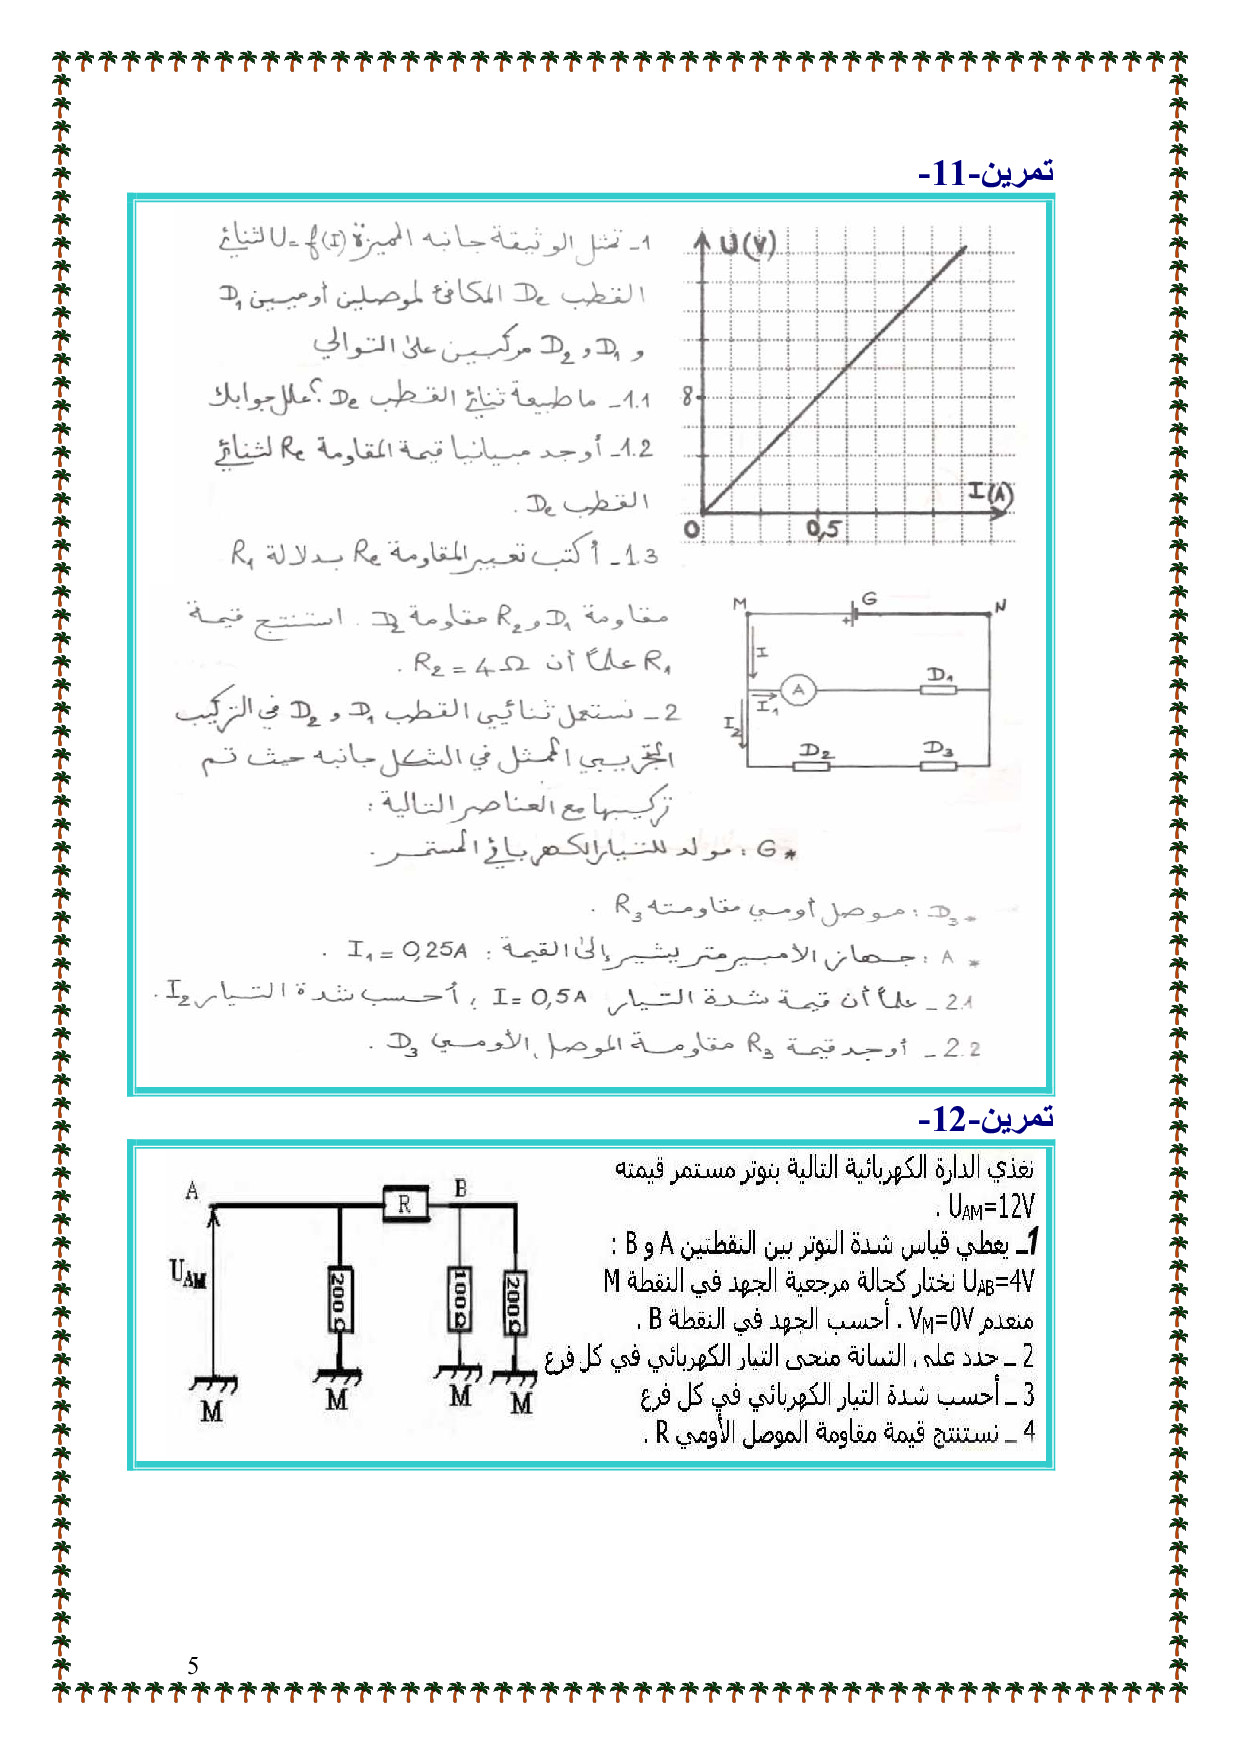 تمرين-11-
1_ تمثل الوثيقة جانبه المميزة U= f(I) لثنائي
القطب De المكافئ لموصلين أوميين D1
و D1 و D2 مركبين على التوالي
1.1_ ما طبيعة ثنائي القطب De ؟ علل جوابك
1.2_ أوجد مبيانيا قيمة المقاومة Re لثنائي
القطب De .
1.3_ أكتب تعبير المقاومة Re بدلالة R1
مقاومة D1 و R2 مقاومة D2 . استنتج قيمة
R1 علماً أن R2 = 4 Ω .
2_ نستعمل ثنائيي القطب D1 و D2 في التركيب
التجريبي الممثل في الشكل جانبه حيث تم
تركيبها مع العناصر التالية :
* G : مولد للتيار الكهربائي المستمر .
* D3 : موصل أومي مقاومته R3 .
* A : جهاز الأمبيرمتر يشير إلى القيمة : I1 = 0,25A .
2.1_ علماً أن قيمة شدة التيار I = 0,5A ، أحسب شدة التيار I2 .
2.2_ أوجد قيمة R3 مقاومة الموصل الأومي D3 .
U(V)
8
I(A)
0
0,5
M
G
N
+
I
A
D1
I1
I2
D2
D3
تمرين-12-
نغذي الدارة الكهربائية التالية بتوتر مستمر قيمته
UAM=12V .
1ـ يعطي قياس شدة التوتر بين النقطتين A و B :
UAB=4V نختار كحالة مرجعية الجهد في النقطة M
منعدم VM=0V . أحسب الجهد في النقطة B .
2 ـ حدد على التبيانة منحى التيار الكهربائي في كل فرع
3 ـ أحسب شدة التيار الكهربائي في كل فرع
4 ـ نستنتج قيمة مقاومة الموصل الأومي R .
A
R
B
UAM
200Ω
100Ω
200Ω
M
M
M
M
5